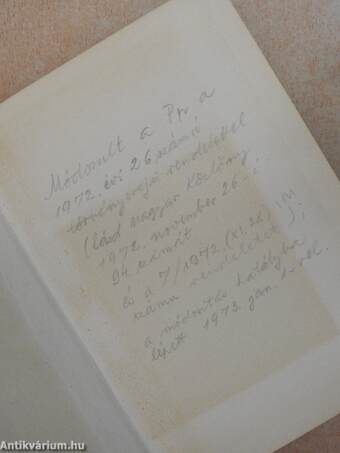 Módosult a Pp. a
1972. évi 26 számú
törvényerejű rendelettel
(lásd Magyar Közlöny
1972. november 26-i
94 számát
és a 7/1972 (XI. 26) IM
számú rendelettel);
a módosítás hatályba
lépett 1973. jan. 1-től.
Antikvárium.hu